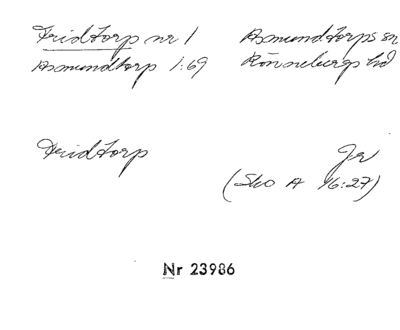 Fridtorp nr 1
Asmundtorps sn
Asmundtorp 1:69
Rönnebergs hd
Fridtorp
Jr
(Sko A 46:27)
Nr 23986